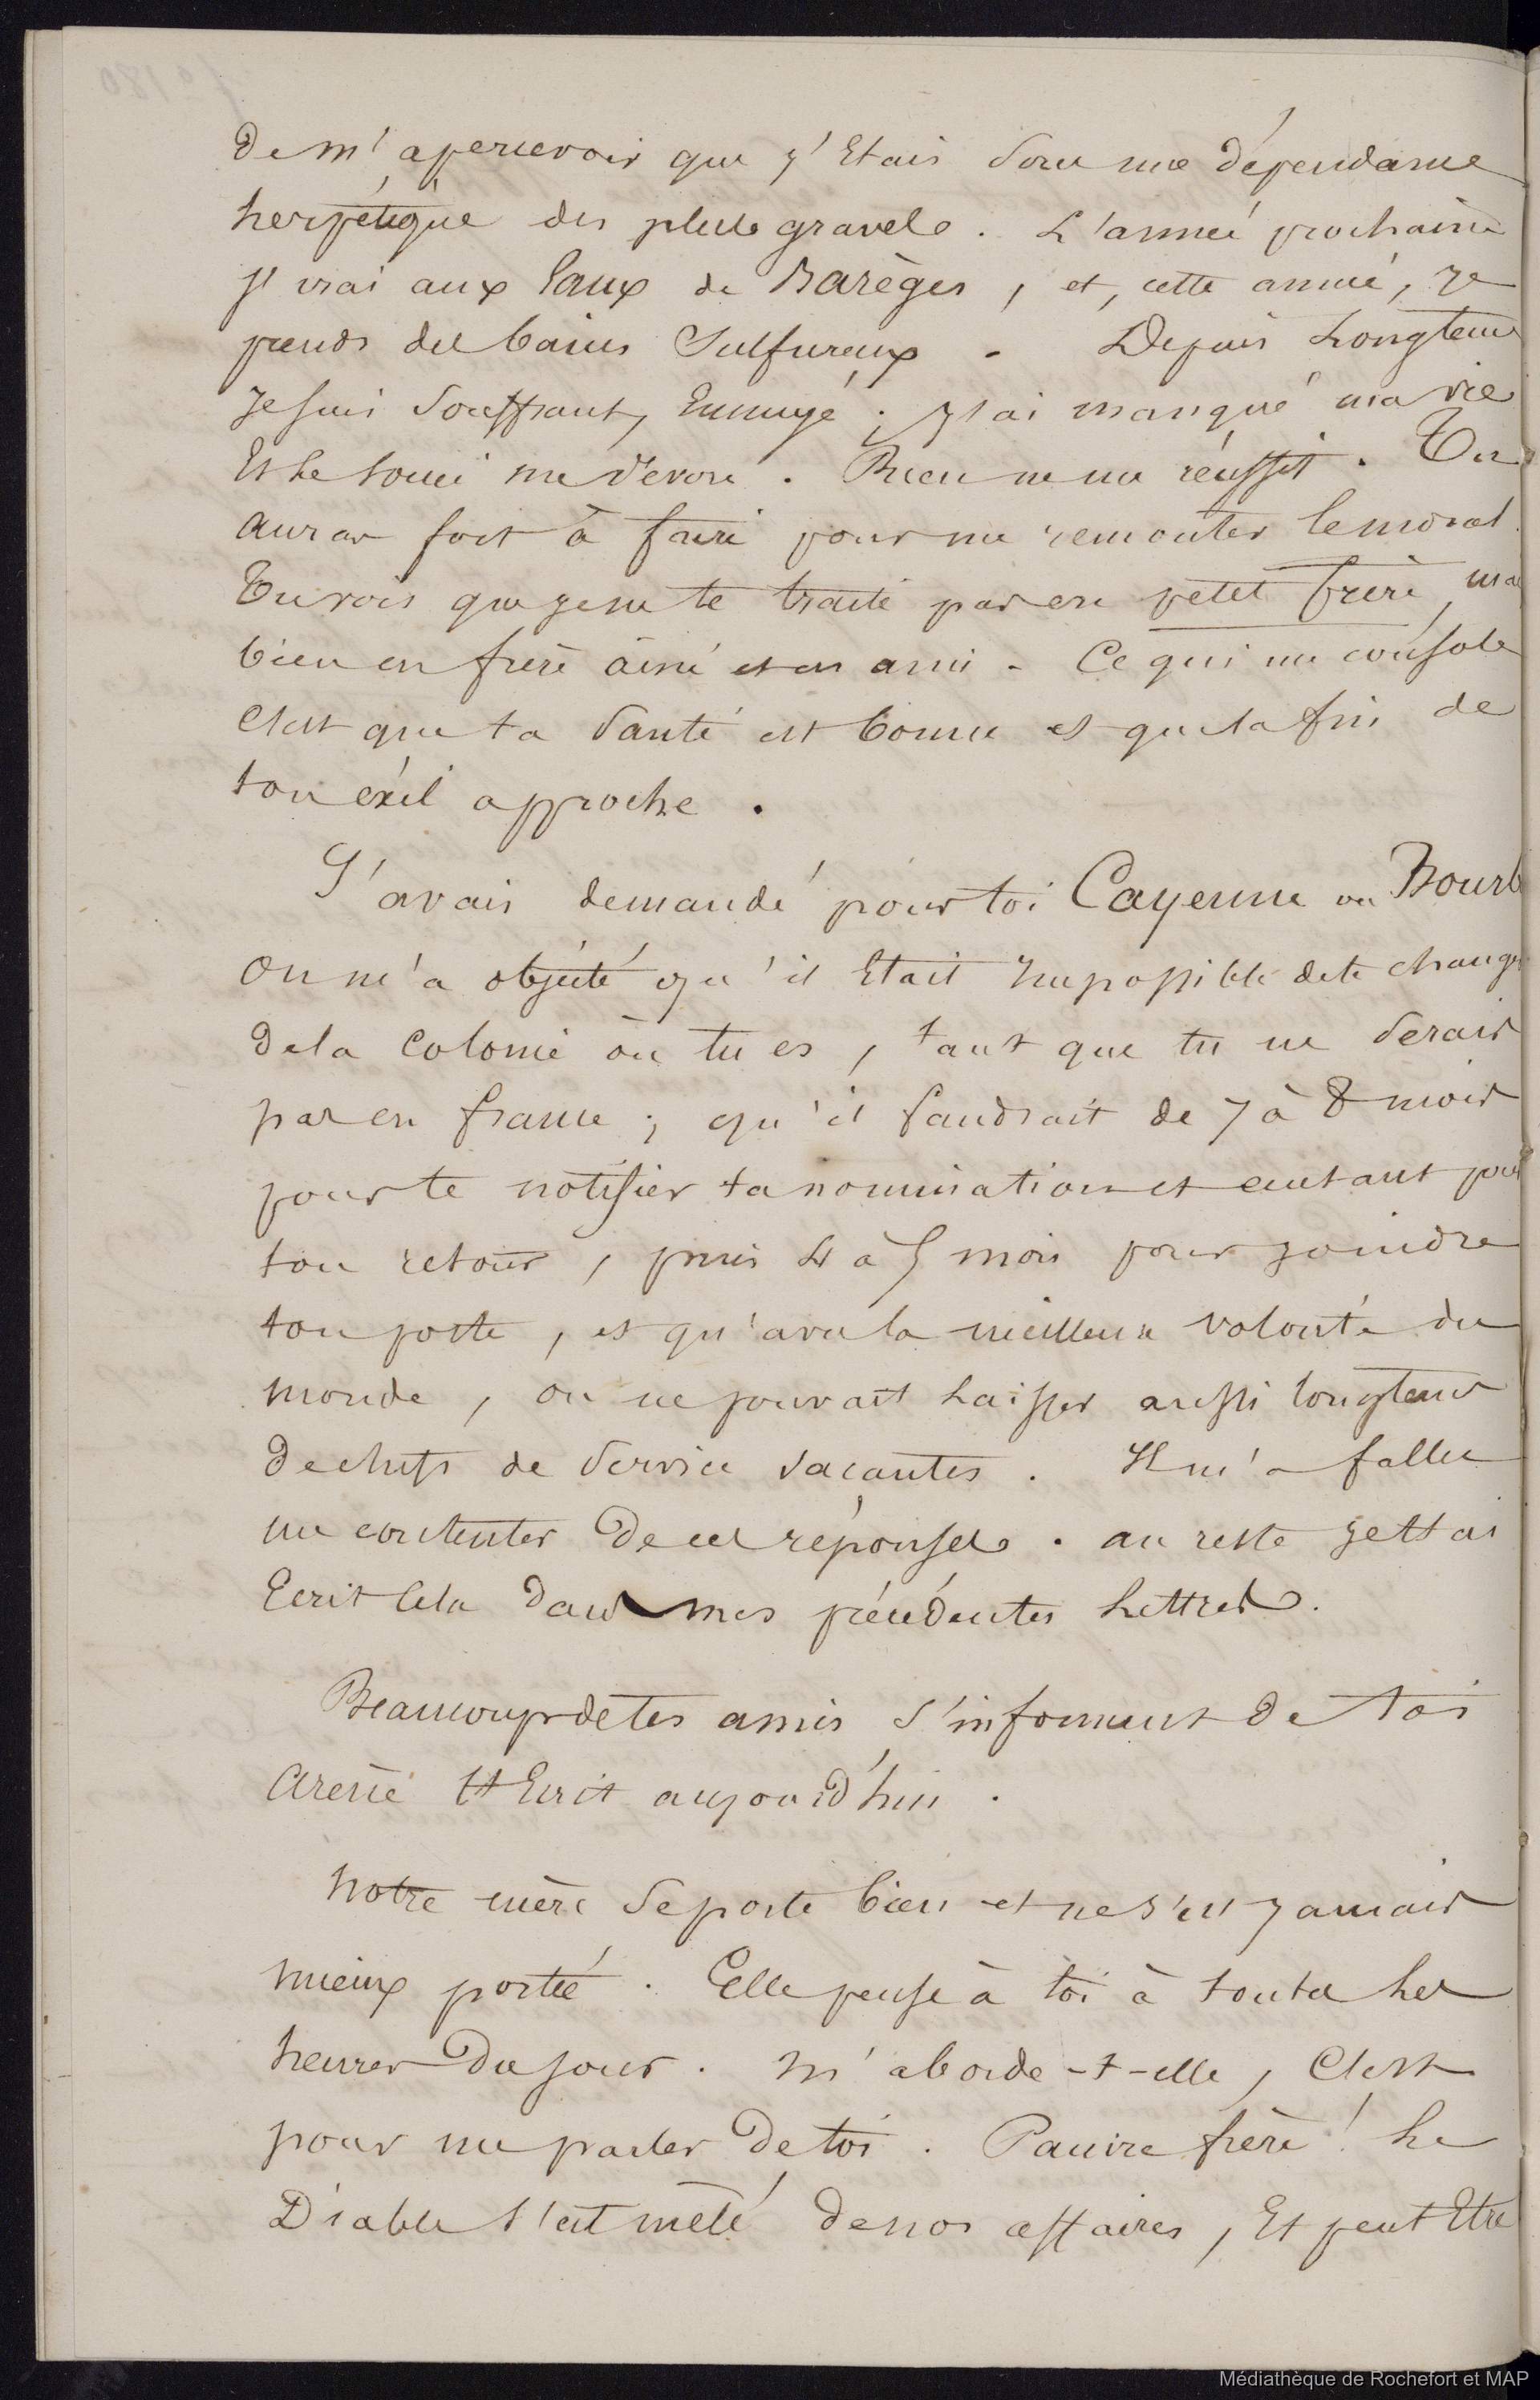 de m'apercevoir que j'étais sous une dépendance
herpétique des plus graves. L'année prochaine
j'irai aux Eaux de Barèges, et, cette année, je
prends des bains Sulfureux. Depuis Longtems
Je suis Souffrant, Ennuyé; j'ai manqué ma vie
Et le souci me dévore. Rien ne me réussit. Tu
auras fort à faire pour me remonter le moral.
Tu vois que je ne te traite pas en petit frère, ma
bien en frère ainé et en ami. Ce qui me console
C'est que ta Santé est bonne et que la fin de
ton éxil approche.
J'avais demandé pour toi Cayenne ou Bourb
On m'a objecté qu'il était Impossible de te change
de la Colonie où tu es, tant que tu ne Serais
pas en france; qu'il faudrait de 7 à 8 mois
pour te notifier ta nomination et autant pour
ton retour, puis 4 à 5 mois pour joindre
ton poste, et qu'avec la meilleure volonté du
monde, on ne pouvait Laisser aussi longtems
de chefs de Service vacantes. Il m'a fallu
me contenter de ces réponses. au reste je t'ai
Ecrit Cela dans mes précédentes Lettres.
Beaucoup de tes amis s'informent de toi
Arène t'Ecrit aujourd'hui.
Notre mère Se porte bien et ne s'est jamais
mieux portée. Elle pense à toi à toutes les
heures du jour. M'aborde-t-elle, C'est
pour me parler de toi. Pauvre frère! Le
Diable s'est mêlé de nos affaires, Et peut Etre
Médiathèque de Rochefort et MAP